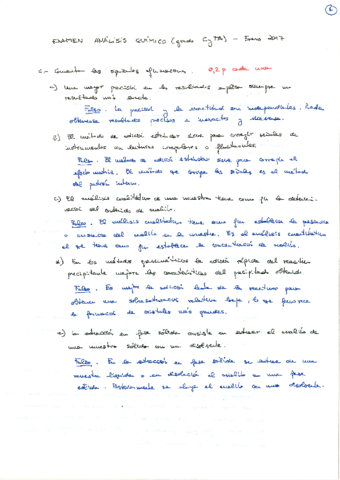 1
EXAMEN ANÁLISIS QUÍMICO (grado CyTA) - Enero 2017
1.- Comentar las siguientes afirmaciones. 0,2 p cada una
a) Una mayor precisión en los resultados implica siempre un
resultado más exacto.
Falso. La precisión y la exactitud son independientes. Puedo
obtenerse resultados precisos e inexactos y viceversa.
b) El método de adición estándar sirve para corregir señales de
instrumentos con lecturas irregulares o fluctuantes.
Falso. El método de adición estándar sirve para corregir el
efecto matriz. El método que corrige las señales es el método
del patrón interno.
c) El análisis cualitativo de una muestra tiene como fin la determi-
nación del contenido de analito.
Falso. El análisis cualitativo tiene como fin establecer la presencia
o ausencia del analito en la muestra. Es el análisis cuantitativo
el que tiene como fin establecer la concentración de analito.
d) En los métodos gravimétricos la adición rápida del reactivo
precipitante mejora las características del precipitado obtenido.
Falso. Es mejor la adición lenta de la reactivo para
obtener una sobresaturación relativa baja, lo que favorece
la formación de cristales más grandes.
e) La extracción en fase sólida consiste en extraer el analito de
una muestra sólida con un disolvente.
Falso. En la extracción en fase sólida se extrae de una
muestra líquida o en disolución el analito en una fase
sólida. Posteriormente se eluye el analito con un disolvente.